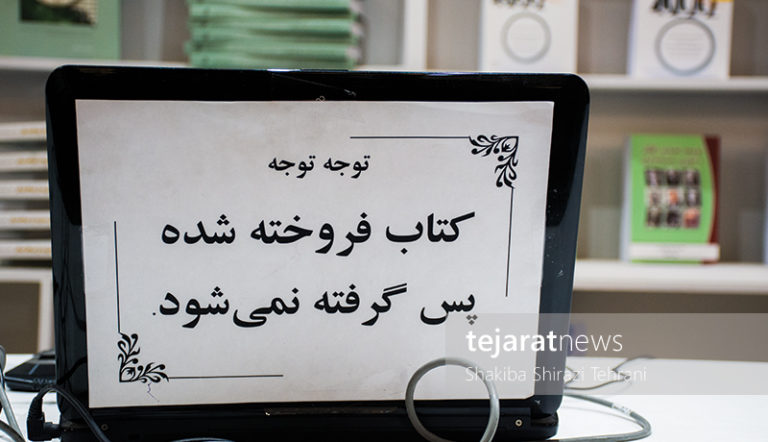 توجه توجه
کتاب فروخته شده
پس گرفته نمی‌شود.
tejaratnews
Shakiba Shirazi Tehrani